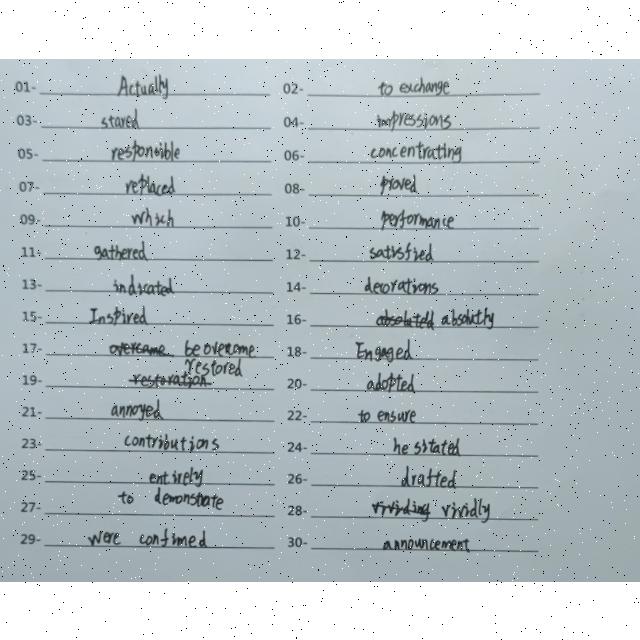 01- Actually 02- to exchange
03- stared 04- impressions
05- responsible 06- concentrating
07- replaced 08- proved
09- which 10- performance
11- gathered 12- satisfied
13- indicated 14- decorations
15- Inspired 16- absoluted absolutly
17- overcame be overcame 18- Engaged
19- restoration restored 20- adopted
21- annoyed 22- to ensure
23- contributions 24- hesitated
25- entirely 26- drafted
27- to demonstrate 28- vividing vividly
29- were confimed 30- announcement